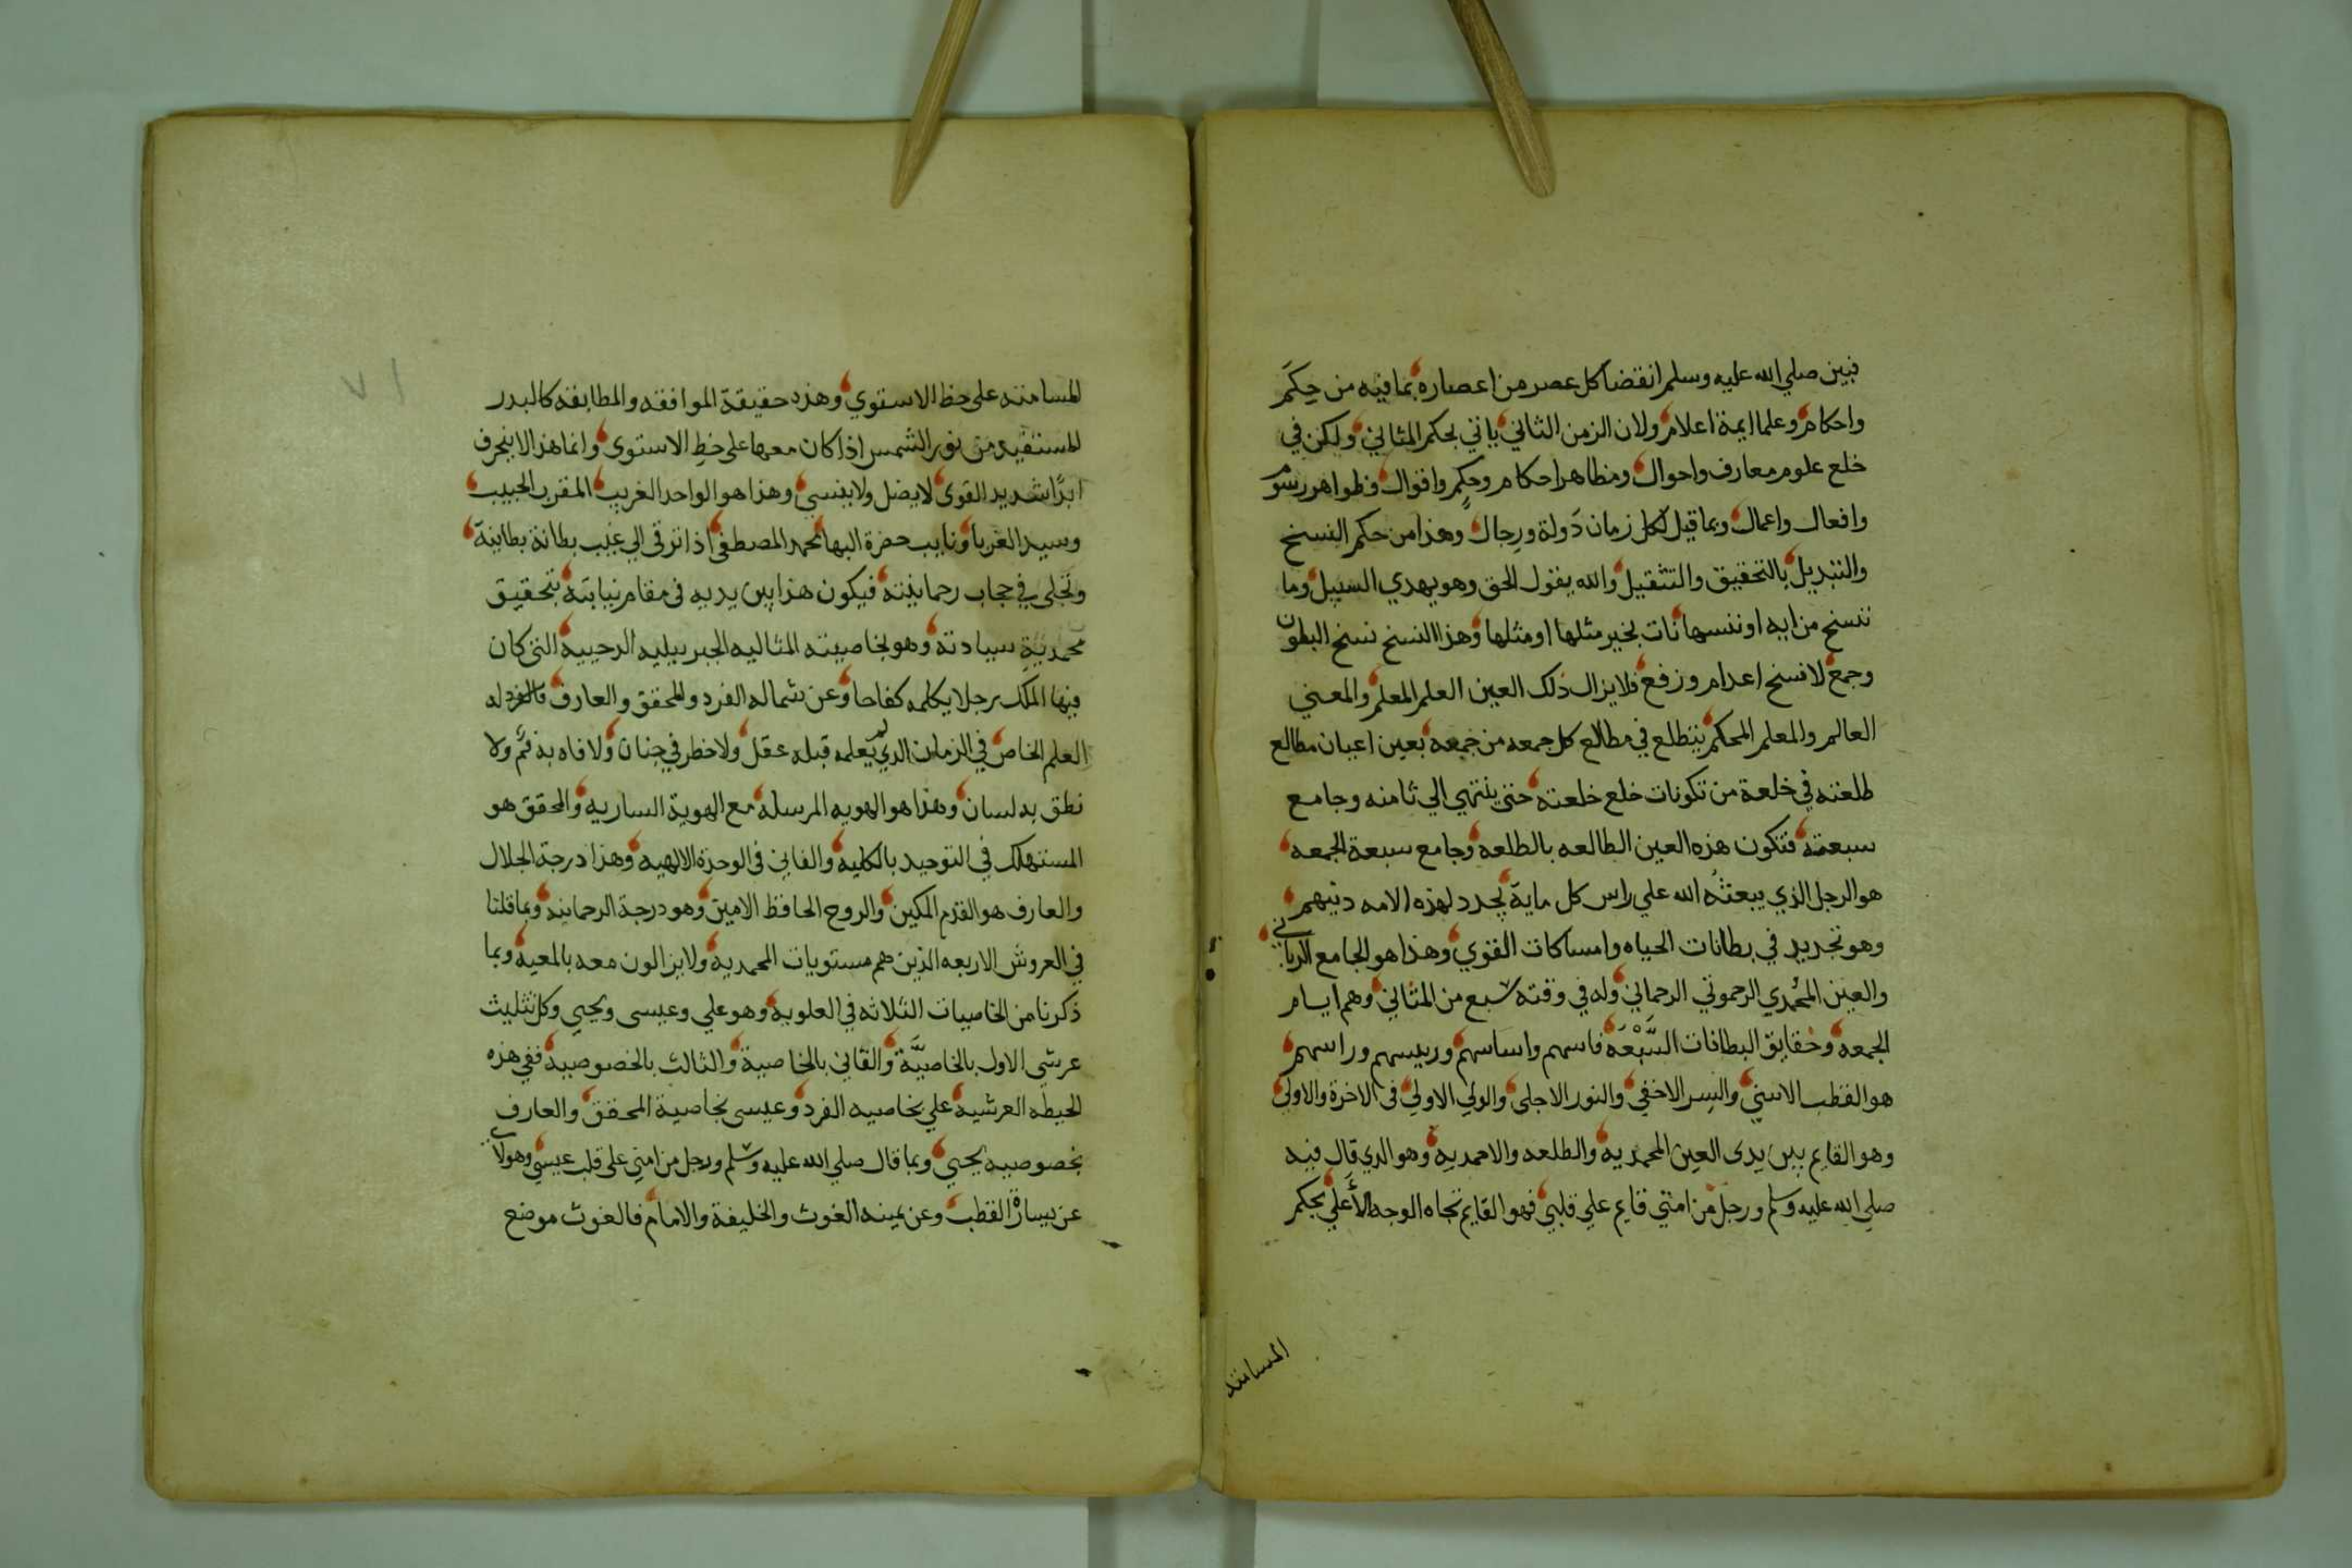 فبين صلي الله عليه وسلم انقضا كل عصر من اعصاره بما فيه من حكم
واحكام وعلما ايمة اعلام ولان الزمن الثاني ياتي بحكم المثاني ولكن في
خلع علوم معارف واحوال ومظاهر احكام وحكم واقوال وظواهر رسوم
وافعال واعمال وبما قيل لكل زمان دولة ورجال وهذا من حكم النسخ
والتبديل بالتحقيق والتثقيل والله يقول الحق وهو يهدي السبيل وما
ننسخ من ايه او ننسها نات بخير منها او مثلها وهذا النسخ نسخ البطون
وجمع لا نسخ اعدام ورفع فلا يزال ذلك العين العلم المعلم والمعني
العالم والمعلم المحكم يتطلع في مطالع كل جمعه من جمعه بعين اعيان مطالع
طلعته في خلعة من تكونات خلع خلعته حتى ينتهي الي ثامنه وجامع
سبعته فتكون هذه العين الطالعه بالطلعه وجامع سبعة الجمعه
هو الرجل الذي يبعثه الله علي راس كل ماية يجدد لهذه الامه دينهم
وهو تجديد في بطانات الحياه وامساكات القوي وهذا هو الجامع الرباني
والعين المحمدي الرحموتي الرحماني وله في وقته سبع من المثاني وهم ايام
الجمعه وحقايق البطانات السبعه فاسهم واساسهم وريسهم وراسهم
هو القطب الاسني والسر الاخفي والنور الاجلى والولي الاولي في الاخرة والاولى
وهو القايم بين يدى العين المحمديه والطلعه والاحمديه وهو الذي قال فيه
صلي الله عليه وسلم ورجل من امتي قايم علي قلبي فهو القايم تجاه الوجه الأعلي بحكم
المسامته
المسامته على خط الاستوي وهذه حقيقة الموافقه والمطابقه كالبدر
المستفيد من نور الشمس اذا كان معها على خط الاستوى وانما هذا لا ينحرف
ابدا شديد القوى لا يضل ولا ينسي وهذا هو الواحد الغريب المقرب الحبيب
وسيد الغربا ونايب حضرة البها محمد المصطفى اذا ترقى الي غيب بطانة بطاينته
وتجلى في حجاب رحمانيته فيكون هذا بين يديه في مقام نيابته بتحقيق
محمدية سيادته وهو بخاصيته المثاليه الجبرييليه الدحييه التى كان
فيها الملك رجلا يكلمه كفاحا وعن شماله الفرد والمحقق والعارف فالفرد له
العلم الخاص في الزمان الذي لم يعلمه قبله عقل ولا خطر في جنان ولا فاه به فم ولا
نطق به لسان وهذا هو الهويه المرسله مع الهوية الساريه والمحقق هو
المستهلك في التوحيد بالكليه والفاني في الوحدة الالهيه وهذا درجة الجلال
والعارف هو القدم المكين والروح الحافظ الامين وهو درجة الرحمانيه وبما قلنا
في العروش الاربعه الذين هم مستويات المحمديه ولا يزالون معه بالمعيه وبما
ذكرنا من الخاصيات الثلاثه في العلويه وهو علي وعيسى ويحيي وكل تثليث
عرشي الاول بالخاصية والثاني بالخاصية والثالث بالخصوصيه ففي هذه
الحيطه العرشيه علي بخاصيه الفرد وعيسى بخاصية المحقق والعارف
بخصوصيه يحيي وبما قال صلي الله عليه وسلم ورجل من امتي على قلب عيسي وهولاء
عن يسارة القطب وعن يمينه الغوث والخليفة والامام فالغوث موضع